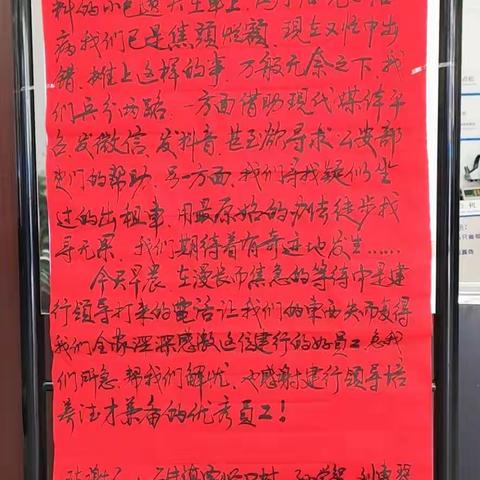 料的小包遗失在车上,
病我们已是焦头烂额,现在又忙中出
错,摊上这样的事,万般无奈之下,我
们兵分两路,一方面借助现代媒体平
台,发微信、发抖音,甚至欲寻求公安部
门的帮助,另一方面,我们寻找疑似坐
过的出租车,用最原始的办法徒步找
寻无果,我们期待着有奇迹地发生……
今天早晨,在漫长而焦急的等待中是建
行领导打来的电话让我们的东西失而复得
我们全家深深感激这位建行的好员工急我
们所急,帮我们解忧,也感谢建行领导培
养德才兼备的优秀员工!